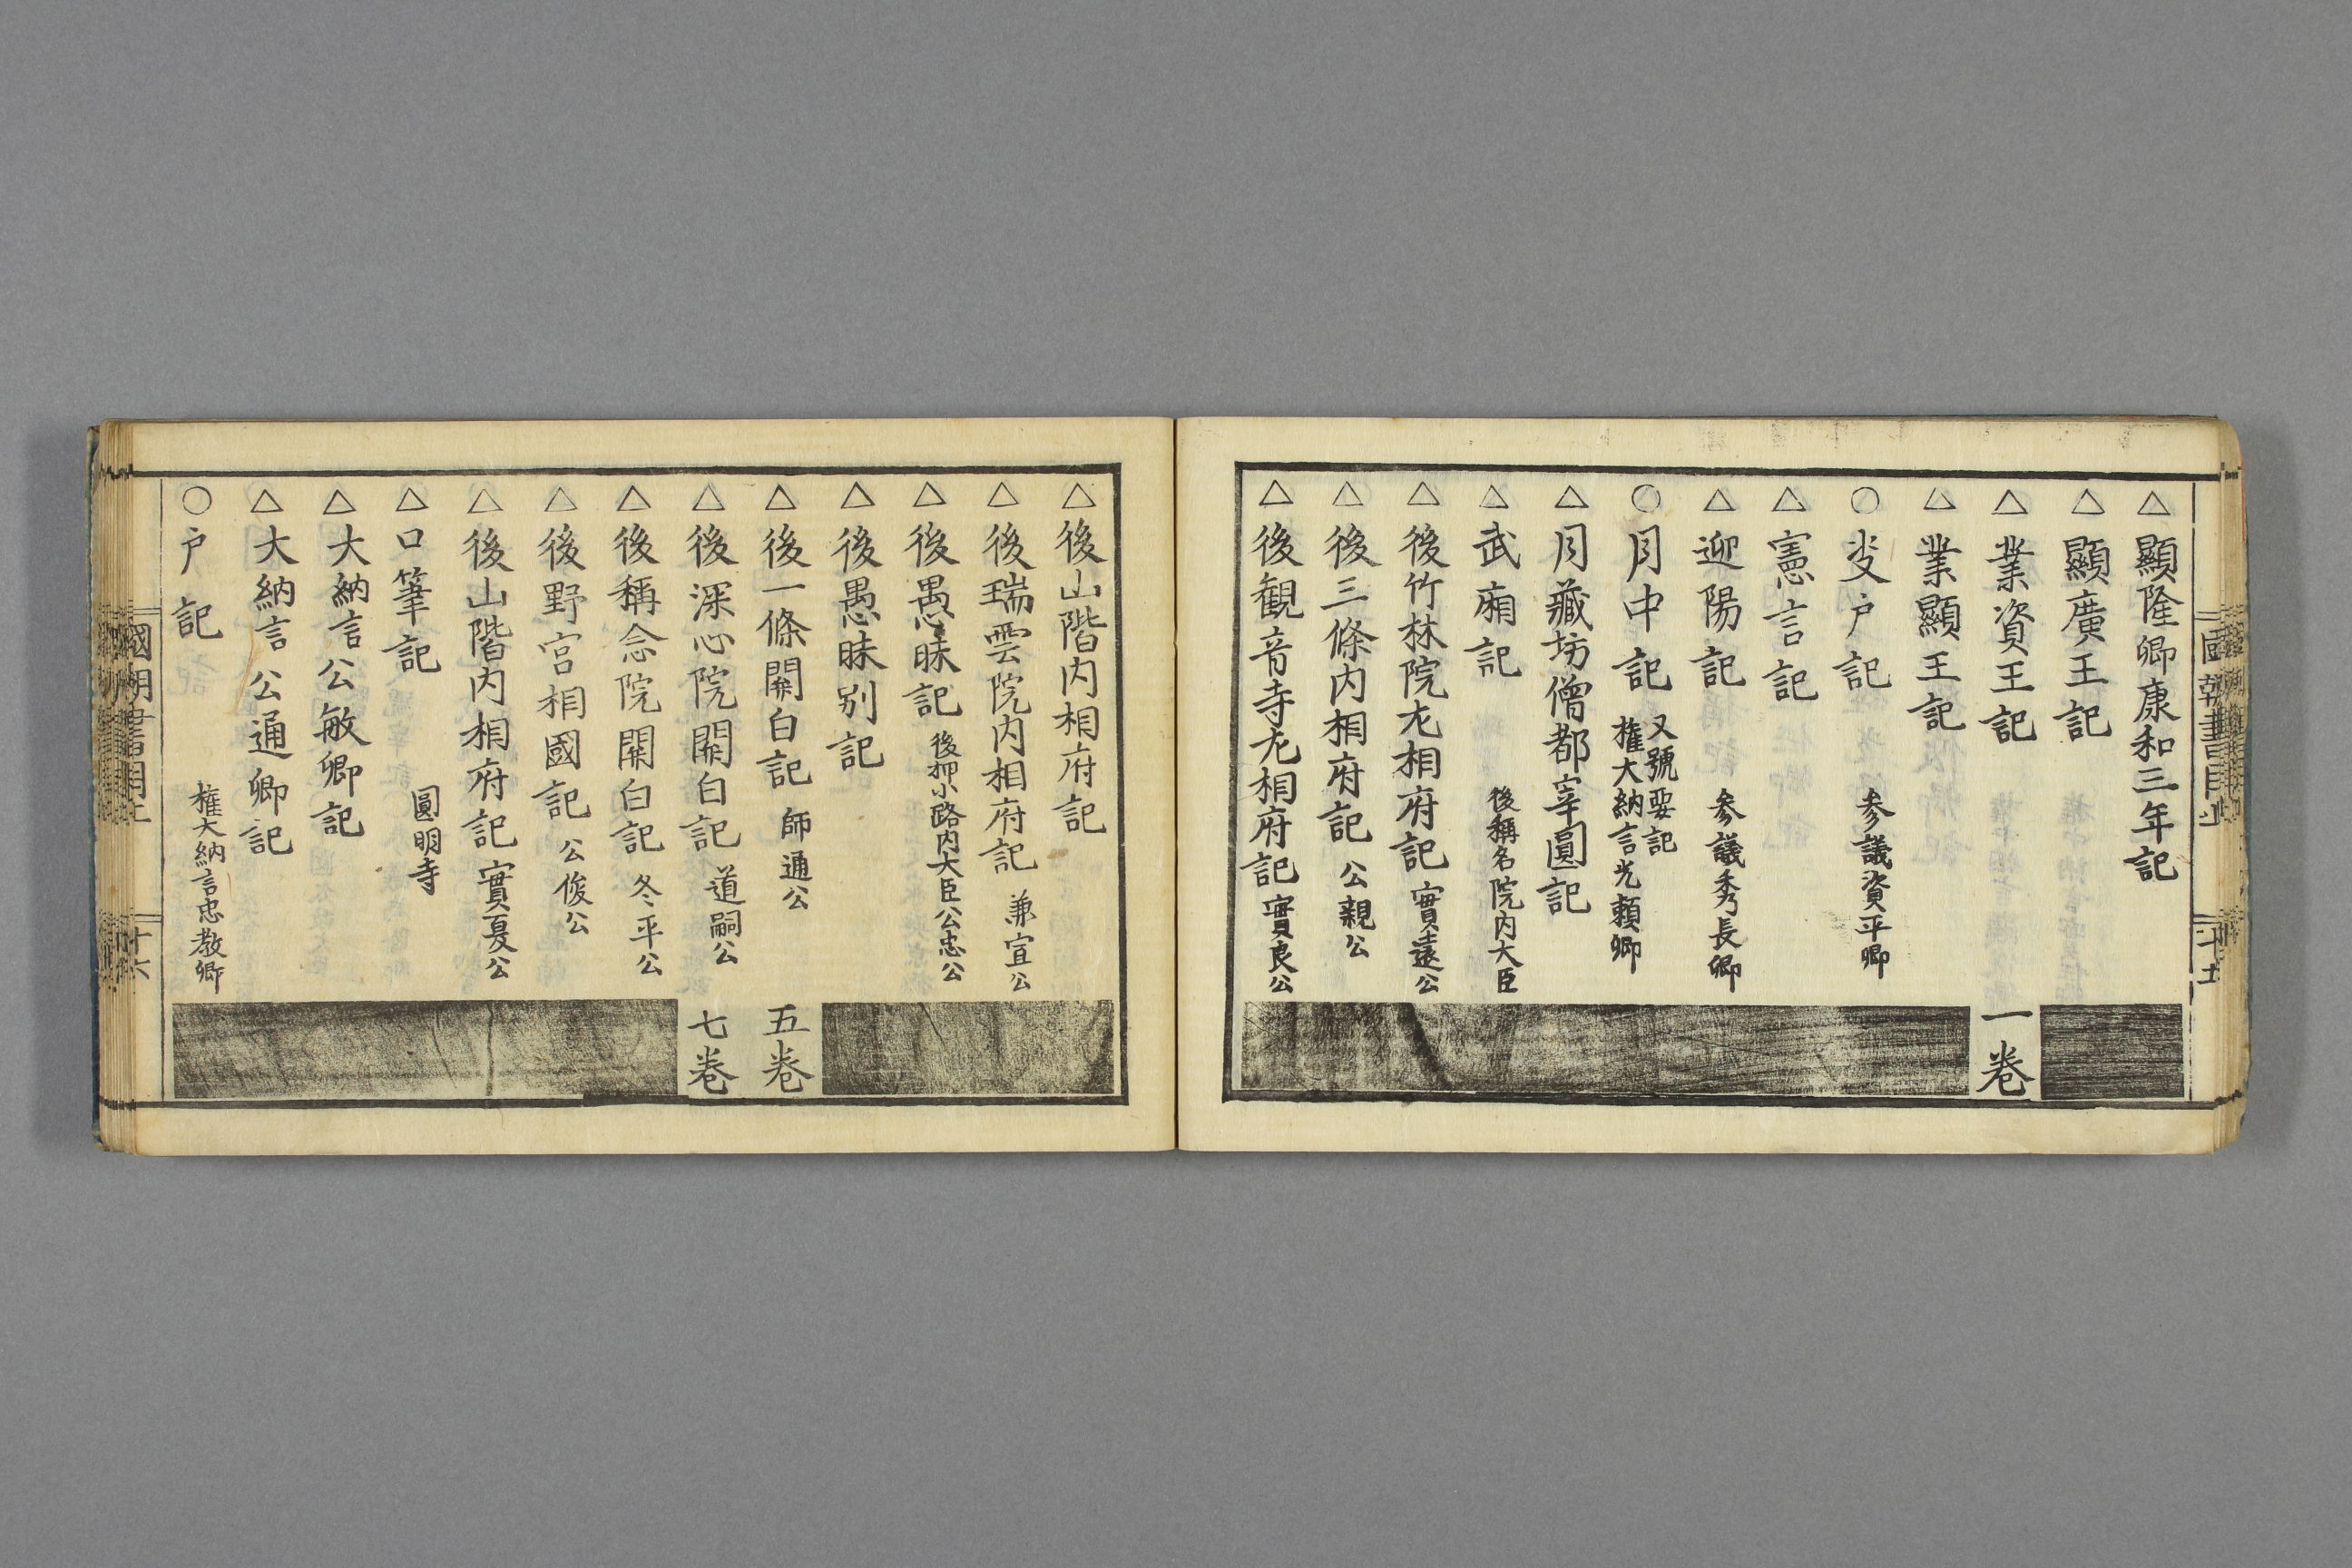 △顯隆卿康和三年記
△顯廣王記
△業資王記 一卷
△業顯王記
○㕛戶記 参議資平卿
△憲言記
△迎陽記 参議秀長卿
○月中記 又號要記 權大納言光賴卿
△月藏坊僧都宰圓記
△武廟記 後稱名院內大臣
△後竹林院左相府記 實遠公
△後三條內相府記 公親公
△後觀音寺左相府記 實良公
△後山階内相府記
△後瑞雲院内相府記 兼宣公
△後愚昧記 後押小路内大臣公忠公
△後愚昧别記
△後一條關白記 師通公 五卷
△後深心院關白記 道嗣公 七卷
△後稱念院關白記 冬平公
△後野宮相國記 公俊公
△後山階内相府記 實夏公
△口筆記 圓明寺
△大納言公敏卿記
△大納言公通卿記
○戶記 權大納言忠教卿
國朝書目上 十六